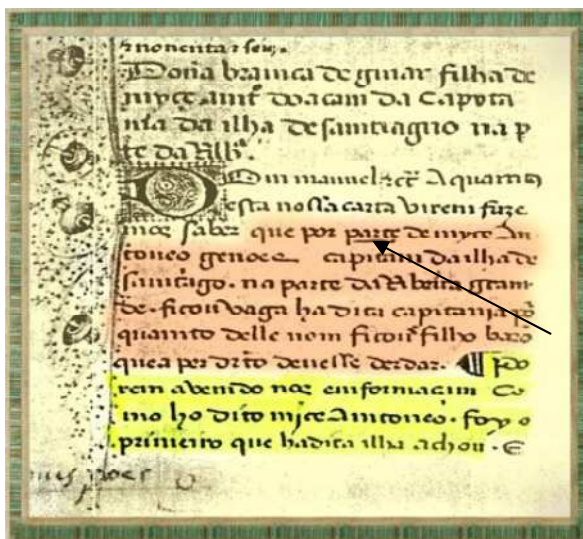 e noventa e seis.
Dona branca de guiar filha de
myce antº doacam da Capyta
nia da ilha de santiaguo na p
te da Rib.ª
Dom manuel &ct A quamtos
esta nossa carta virem faze
mos saber que por parte de myce An
toneo genoes capitam da ilha de
santiago. na parte da Ribeira gram
de. ficou vaga ha dita capitania por
quamto delle nom ficou filho baro
que a per drto devesse derdar. Po
rem avendo nos emformaçam Co
mo ho dito myce Amtoneo. foy o
primeiro que ha dita ilha achou. E